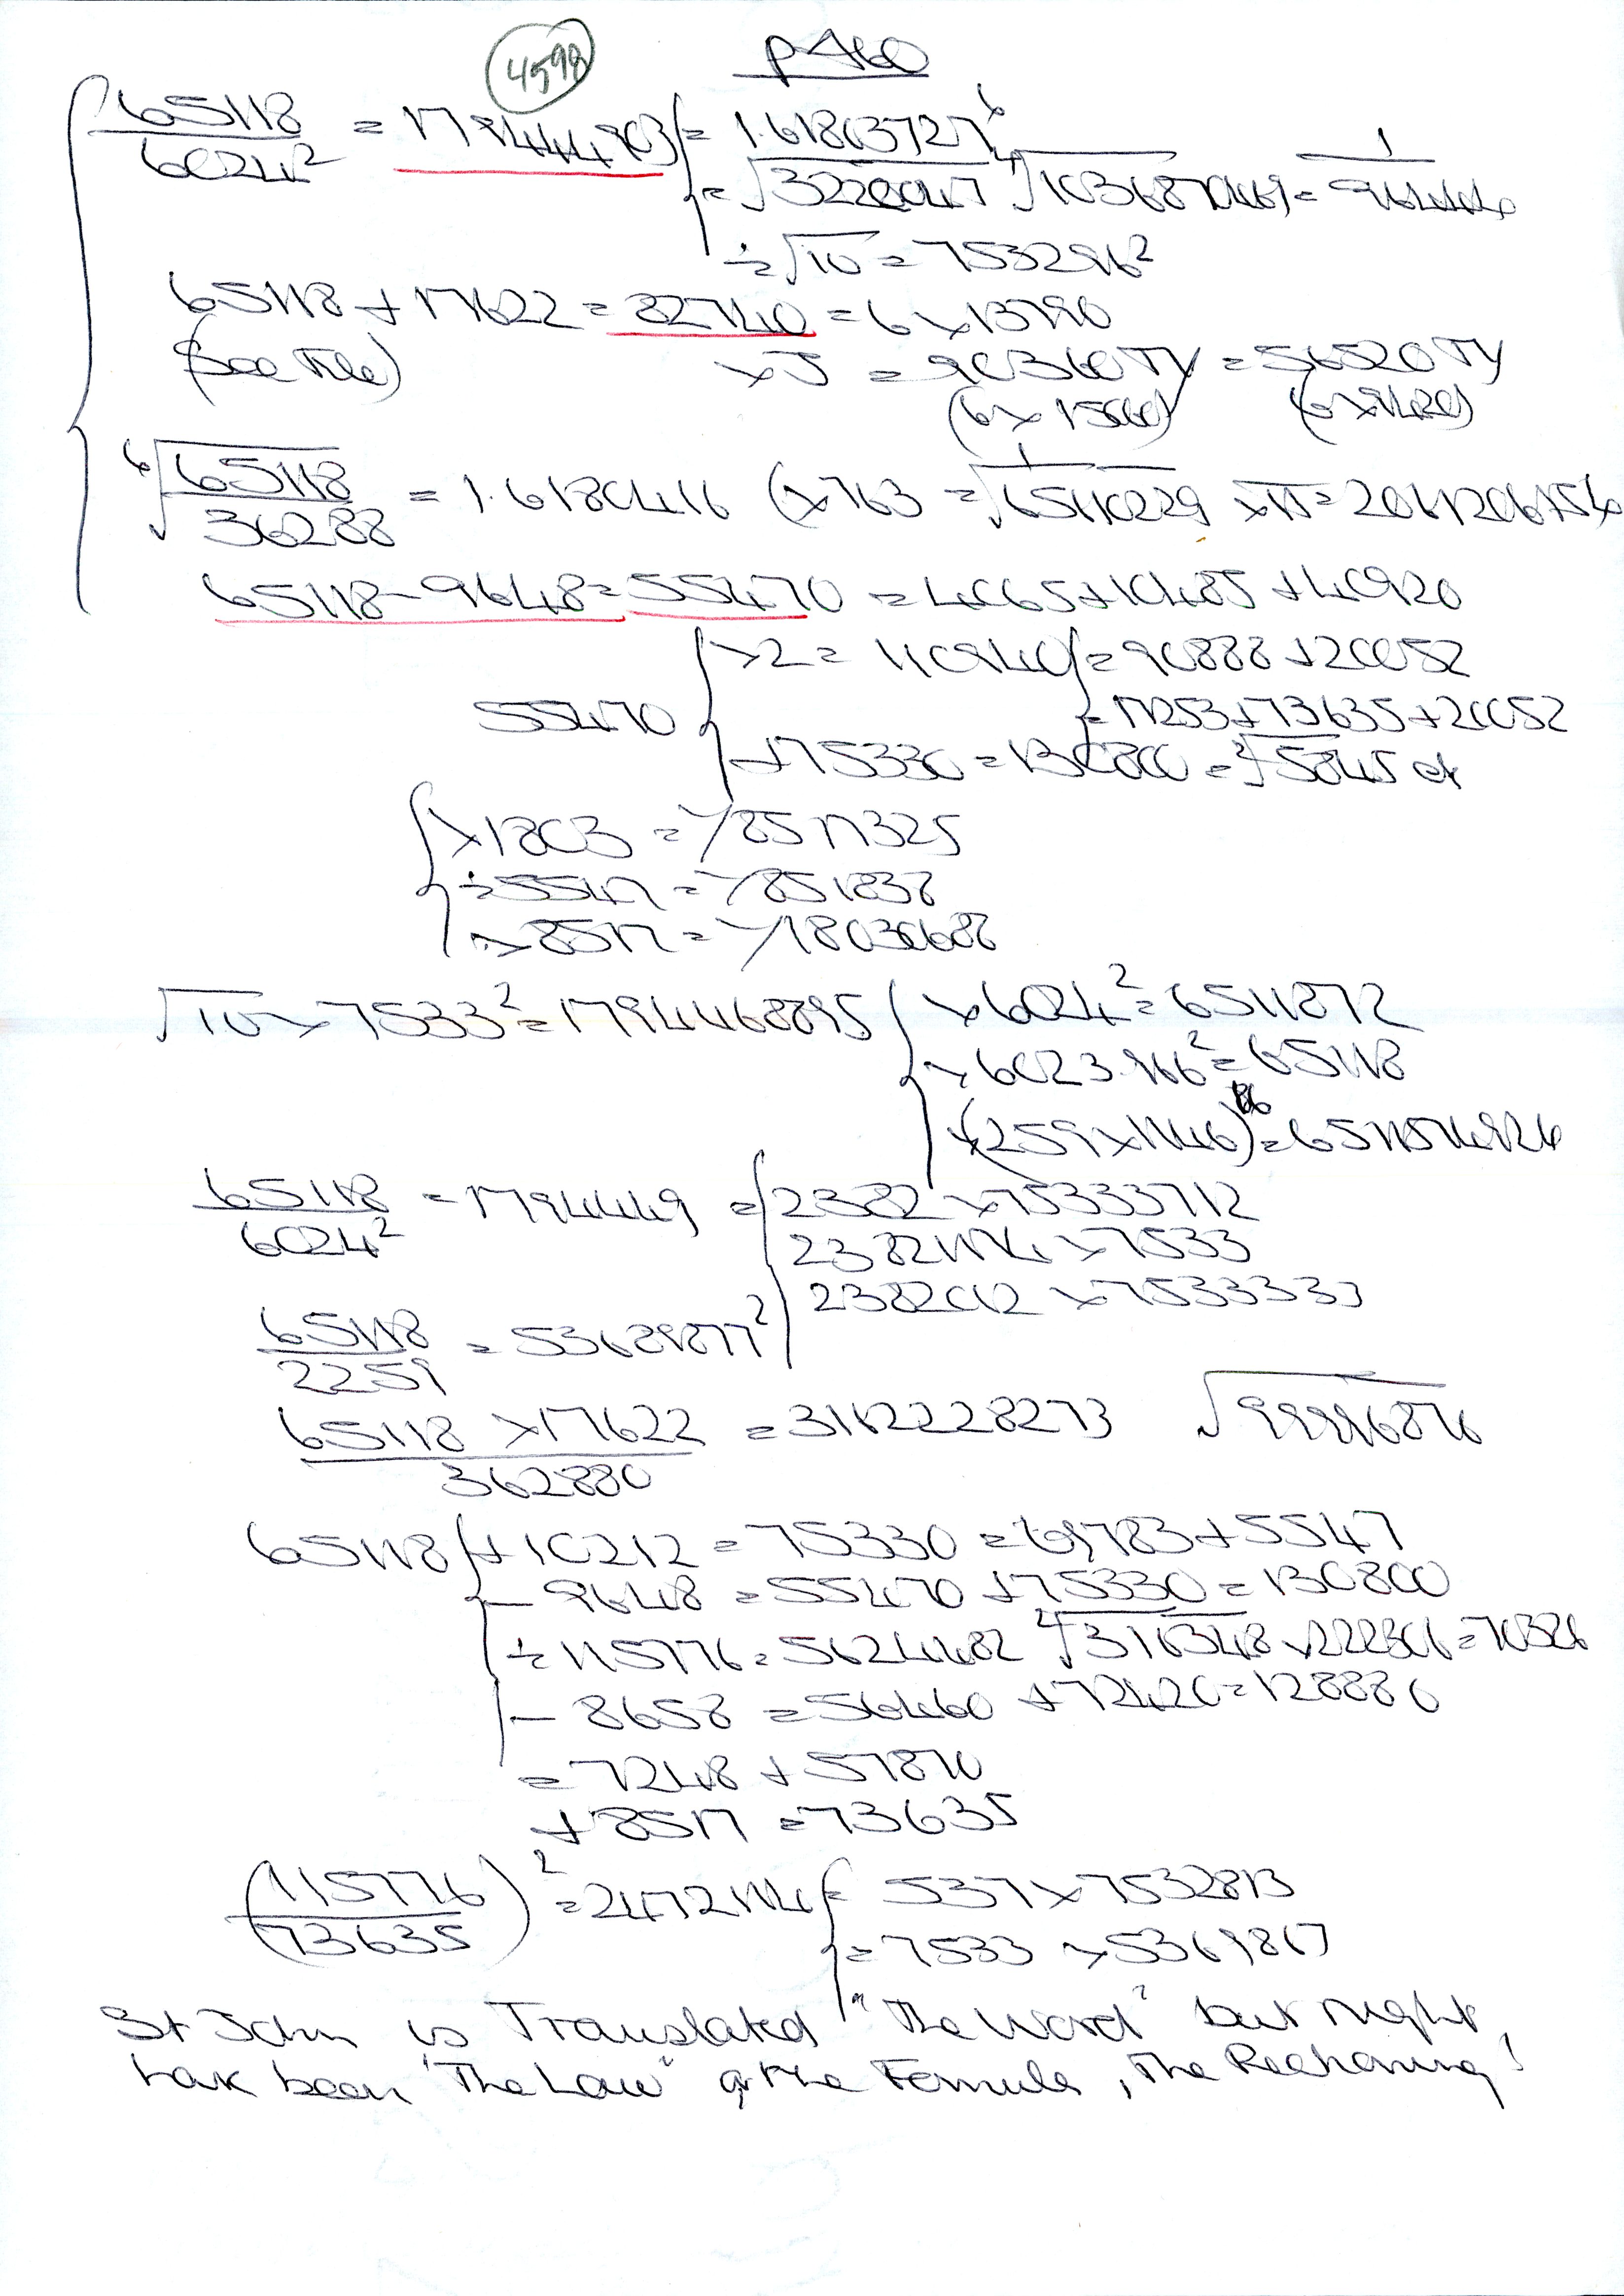 4598
p460
65118/6024² = 179444903 = 1.61803727⁶
= √3220047 ⁴√103687 = 1/
÷ √10 = 753296²
65118 + 17622 = 82740 = 6 × 13790
(See File)
⁶√65118/36288 = 1.6180416 (×763 = 1/√65610229 × π =
65118 - 9648 = 55470 = 4065 + 10485 + 40920
×2 = 110940 = 90888 + 20052
55470
= 17253 + 73635 + 20052
+ 75330 = 130800 = 5845
×1803 = 1/8517325
÷ 5547 = 1/851838
× 8517 = 1/18030688
√10 × 7533² = 1794468895
× 6024² = 6511872
× 6023.966² = 65118
65118/6024² = 1794449 = 2382 × 75333712
238211124 × 7533
2382012 × 7533333
65118/2259 = 53689877²
65118 × 17622/362880 = 3162228273 √99996876
65118 + 10212 = 75330 = 69783 + 5547
- 9648 = 55470 + 75330 = 130800
÷ 115776 = 56244482
- 8658 = 56460 + 72420 = 128880
= 7248 + 57870
+ 8517 = 73635
(115776/73635)² = 2472114 = 537 × 7532813
= 7533 × 5369867
St John is Translated "The Word" but might
have been "The Law" or the Formula, The Reckoning!